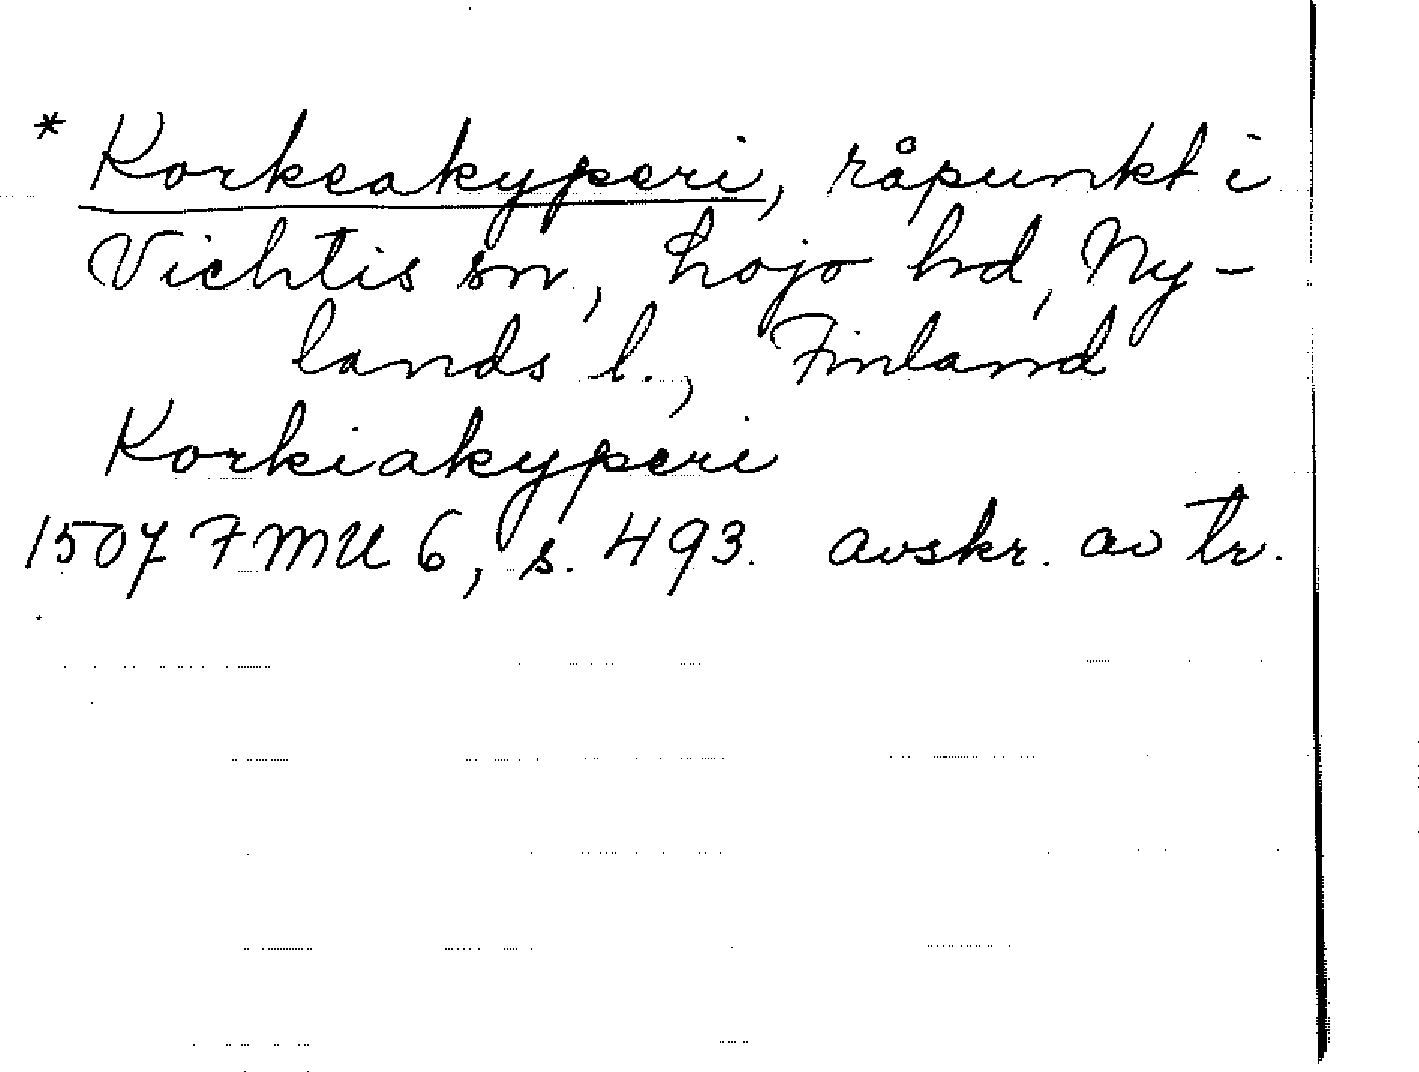 * Korkeakyperi, råpunkt i
Vichtis sn, Lojo hd, Ny-
lands l., Finland
Korkiakyperi
1507 FMU 6, s. 493. avskr. av tr.